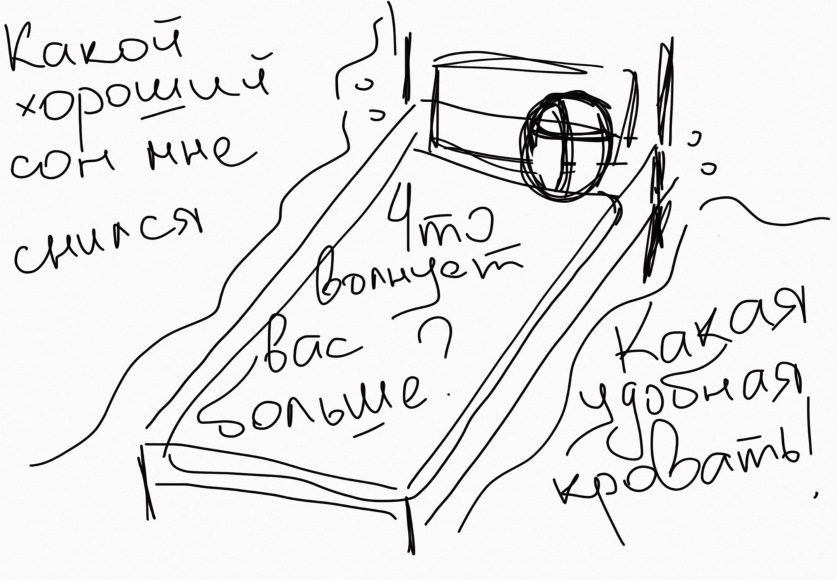 Какой
хороший
сон мне
снился
Что
волнует
вас ?
больше.
Какая
удобная
кровать!